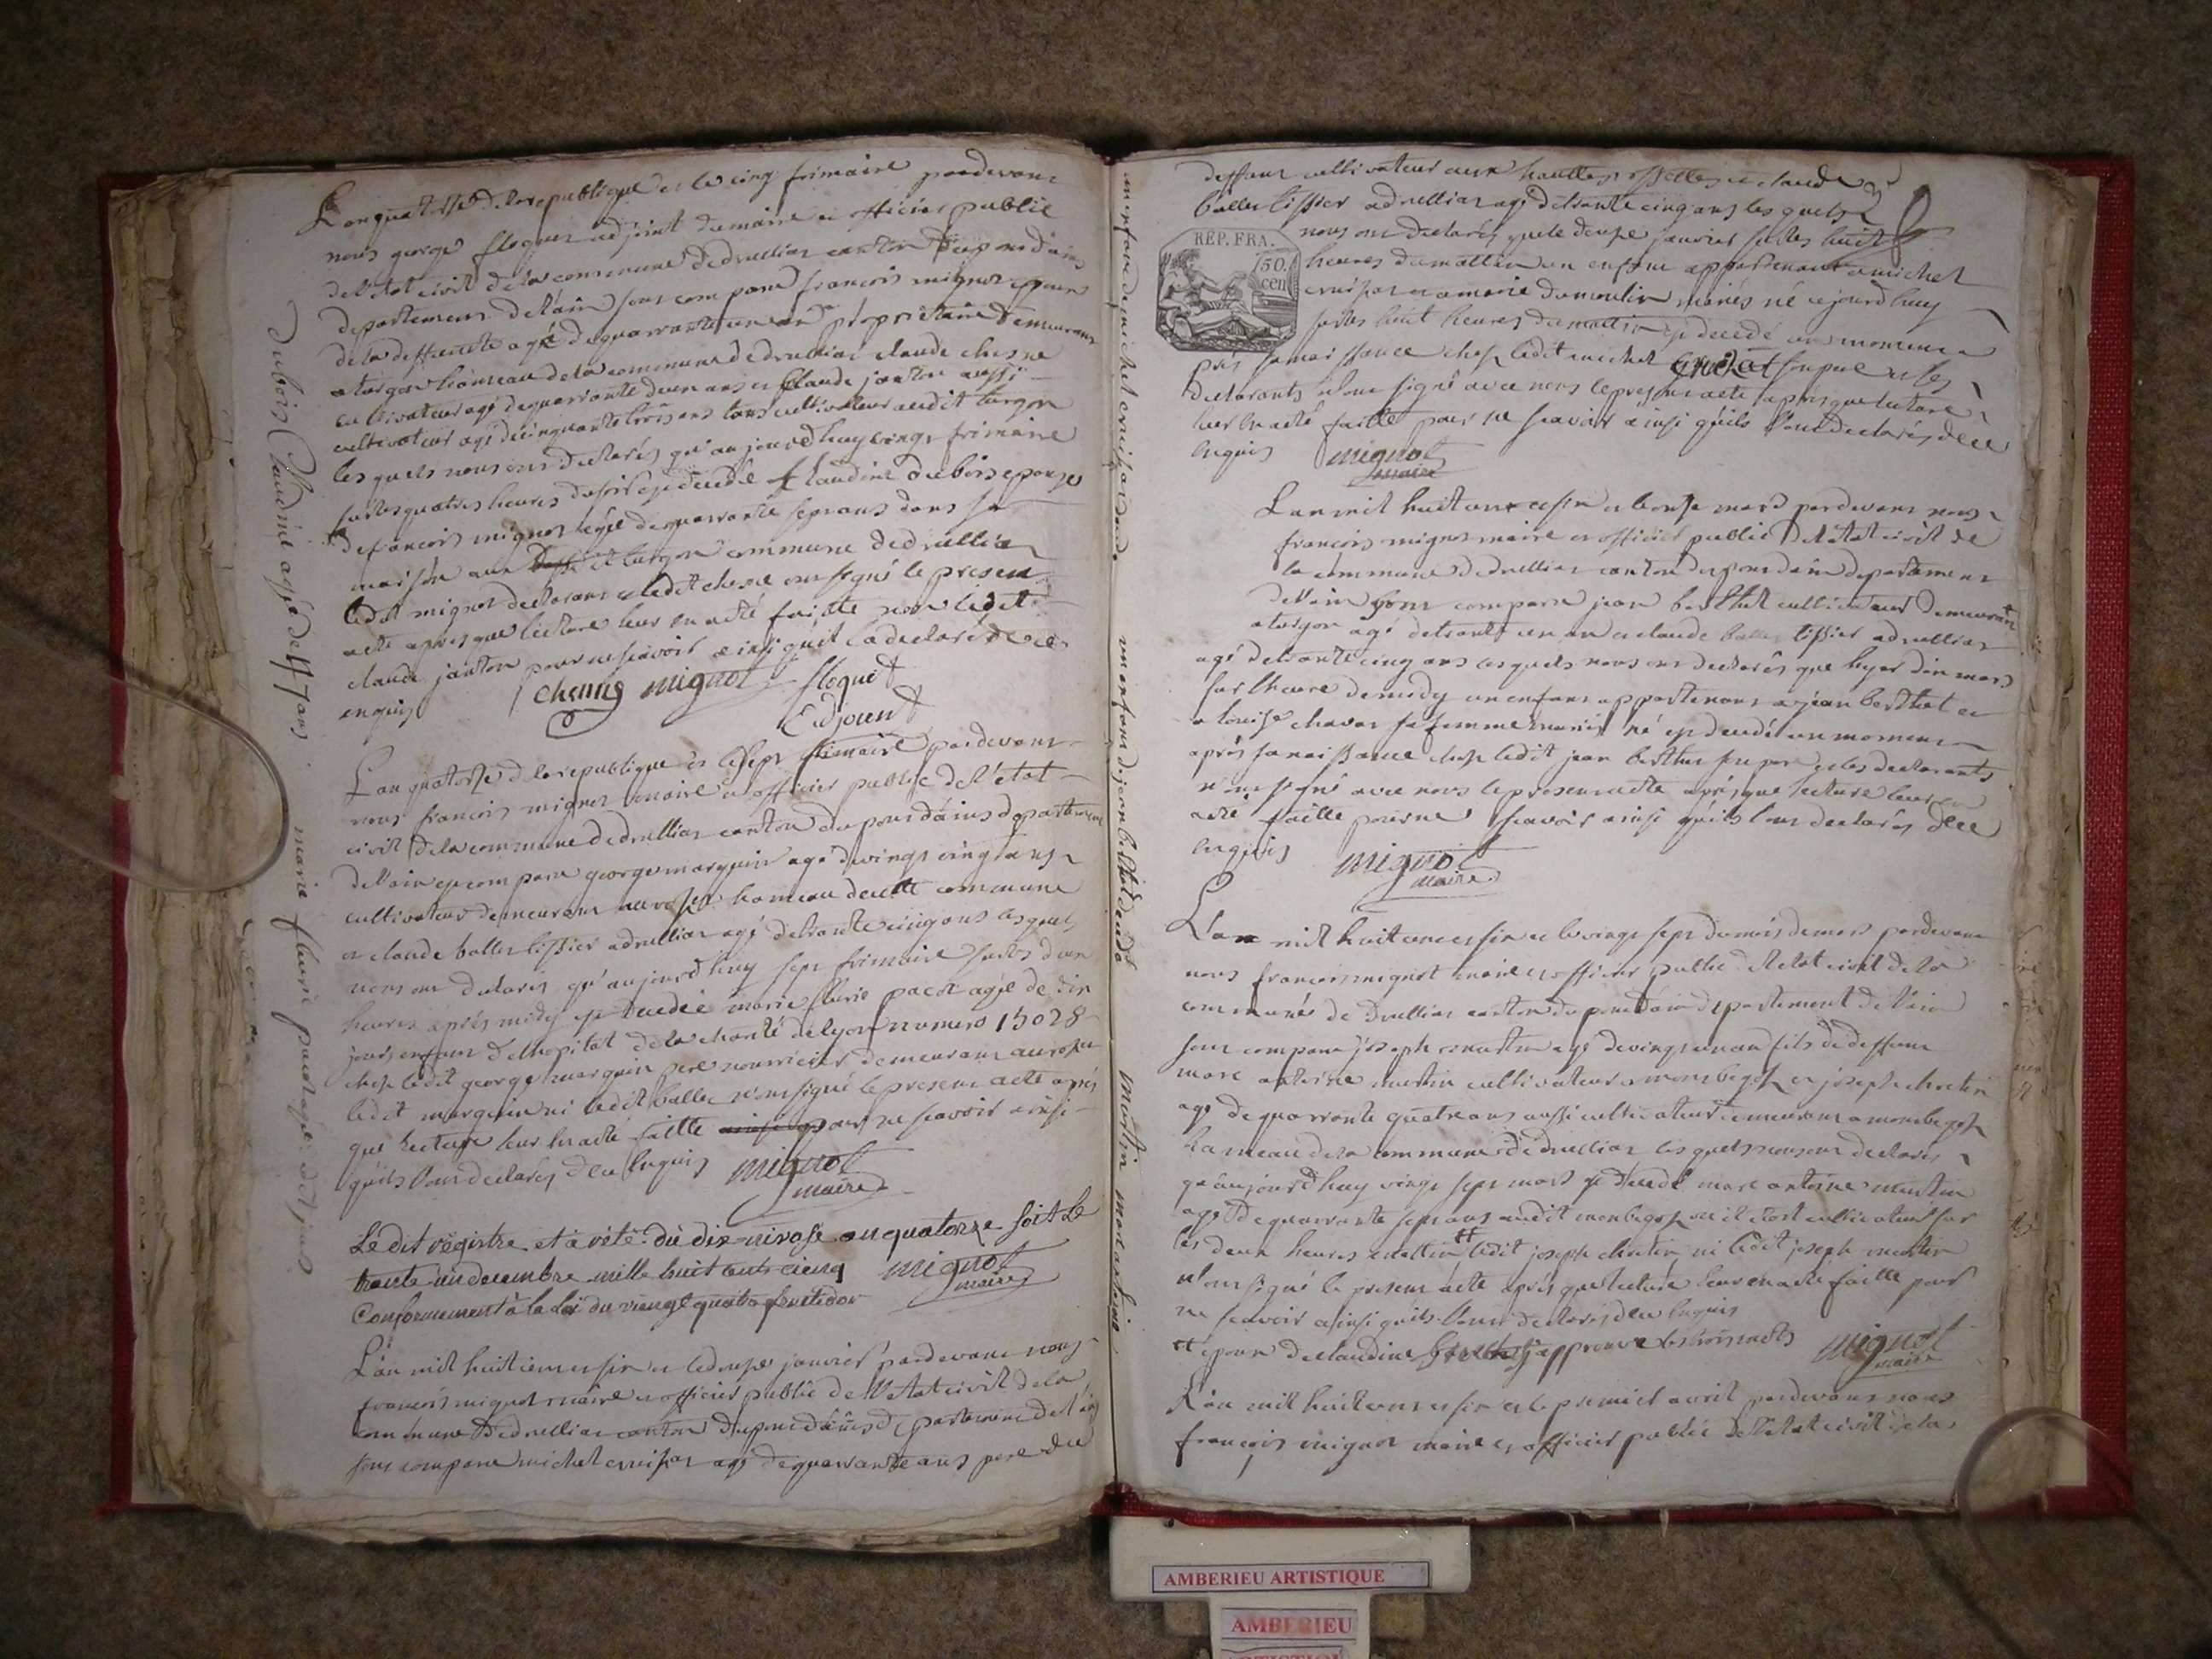 L'an quatorse de la republique et le cinq frimaire pardevant
nous george floquet adjoint du maire et officier public
de l'etat civil de la commune de druilliat canton du pont d'ains
departement de l'ain sont comparu francois mignot epoux
de la deffuncte agé de quarrante un an propriètaire demeurant
a turgon hameau de la commune de druilliat claude chesne
cultivateur agé de quarrante deux ans et claude janton aussi
cultivateur agé de cinquante trois ans tous cultivateur audit turgon
les quels nous ont declarés qu'aujourd'huy cinq frimaire
sur les quatres heures du soir est decedé claudine dubois epouse
de francois mignot agée de quarrante sept ans dans sa
maison turgon commune de druilliat
ledit mignot declarant et ledit chesne ont signé le present
acte apres que lecture leur en a eté faitte non ledit
claude janton pour ne scavoir ainsi qu'il l'a declaré de ce
enquis chesne mignot floquet
adjoint
Dubois Claudine agée de 47 ans
L'an quatorse de la republique et le sept frimaire pardevant
nous francois mignot maire et officier public de l'etat
civil de la commune de druilliat canton du pont d'ains departement
de l'ain est comparu george marguin agé de vingt cinq ans
cultivateur demeurant au hameau de cette commune
et claude ballet tissier a druilliat agé de trante cinq ans lesquels
nous ont declarés qu'aujourd'huy sept frimaire sur les deux
heures après midy est decedée marie fleurie pacot agée de dix
jours enfant de l'hopital de la charité de lyon numero 15028
chez ledit george marguin pere nourricier demeurant au
ledit marguin ni ledit ballet n'ont signé le present acte après
que lecture leur en a eté faitte pour ne scavoir ainsi
qu'ils l'ont declarés de ce enquis mignot
maire
marie fleurie pacot agée de 10 jours
Le dit régistre et arété du dix nivose an quatorze soit le
trante un decembre mille huit cents cinq mignot
maire
Conformement à la loi du vingt quatre fructidor
L'an mil huit cent et six et le douze janvier pardevant nous
francois mignot maire et officier public de l'etat civil de la
commune de druilliat canton du pont d'ains departement de l'ain
sont comparu michel cruisat agé de quarrante ans pere du
deffunt cultivateur aux hauttes et claude
ballet tissier a druilliat agé de trante cinq ans les quels
REP. FRA.
50.
cen
nous ont declarés que le douze janvier sur les huit
heures du mattin un enfant appartenant a michel
cruisat et a marie dumoulin mariés né cejourd'huy
sur les huit heures du mattin est decedé un moment
près sa naissance chez ledit michel cruisat son pere et les
declarants n'ont signé avec nous le present acte apres que lecture
leur en a eté faitte pour ne scavoir ainsi qu'ils l'ont declarés de ce
enquis mignot
maire
un enfant de michel cruisat decedé
L'an mil huit cent et six et le onze mars pardevant nous
francois mignot maire et officier public de l'etat civil de
la commune de druilliat canton du pont d'ain departement
de l'ain sont comparu jean berthet cultivateur demeurant
a turgon agé de trante un an et claude ballet tissier a druilliat
agé de trante cinq ans lesquels nous ont declarés que hyer dix mars
sur l'heure de midy un enfant appartenant a jean berthet et
a louise chavas sa femme mariés né est decedé un moment
après sa naissance chez ledit jean berthet son pere et les declarants
n'ont signé avec nous le present acte après que lecture leur en
a eté faitte pour ne scavoir ainsi qu'ils l'ont declarés de ce
enquis mignot
maire
un enfant de jean berthet decedé
L'an mil huit cent et six et le vingt sept du mois de mars pardevant
nous francois mignot maire et officier public de l'etat civil de la
commune de Druilliat canton du pont d'ain departement de l'ain
sont comparu joseph martin agé de vingt un an fils de deffunt
marc antoine martin cultivateur a et joseph chretin
agé de quarrante quatre ans aussi cultivateur demeurant a
hameau de la commune de druilliat lesquels nous ont declarés
qu'aujourd'huy vingt sept mars est decedé marc antoine martin
agé de quarrante sept ans audit ou il etoit cultivateur sur
les deux heures mattin ledit joseph chretin ni ledit joseph martin
n'ont signé le present acte après que lecture leur en a eté faitte pour
ne scavoir ainsi qu'ils l'ont declarés de ce enquis
et epoux de claudine j'approuve les trois mots mignot
maire
Martin marc antoine
L'an mil huit cent et six et le premier avril pardevant nous
françois mignot maire et officier public de l'etat civil de la
AMBERIEU ARTISTIQUE
AMBERIEU
ARTISTIQUE